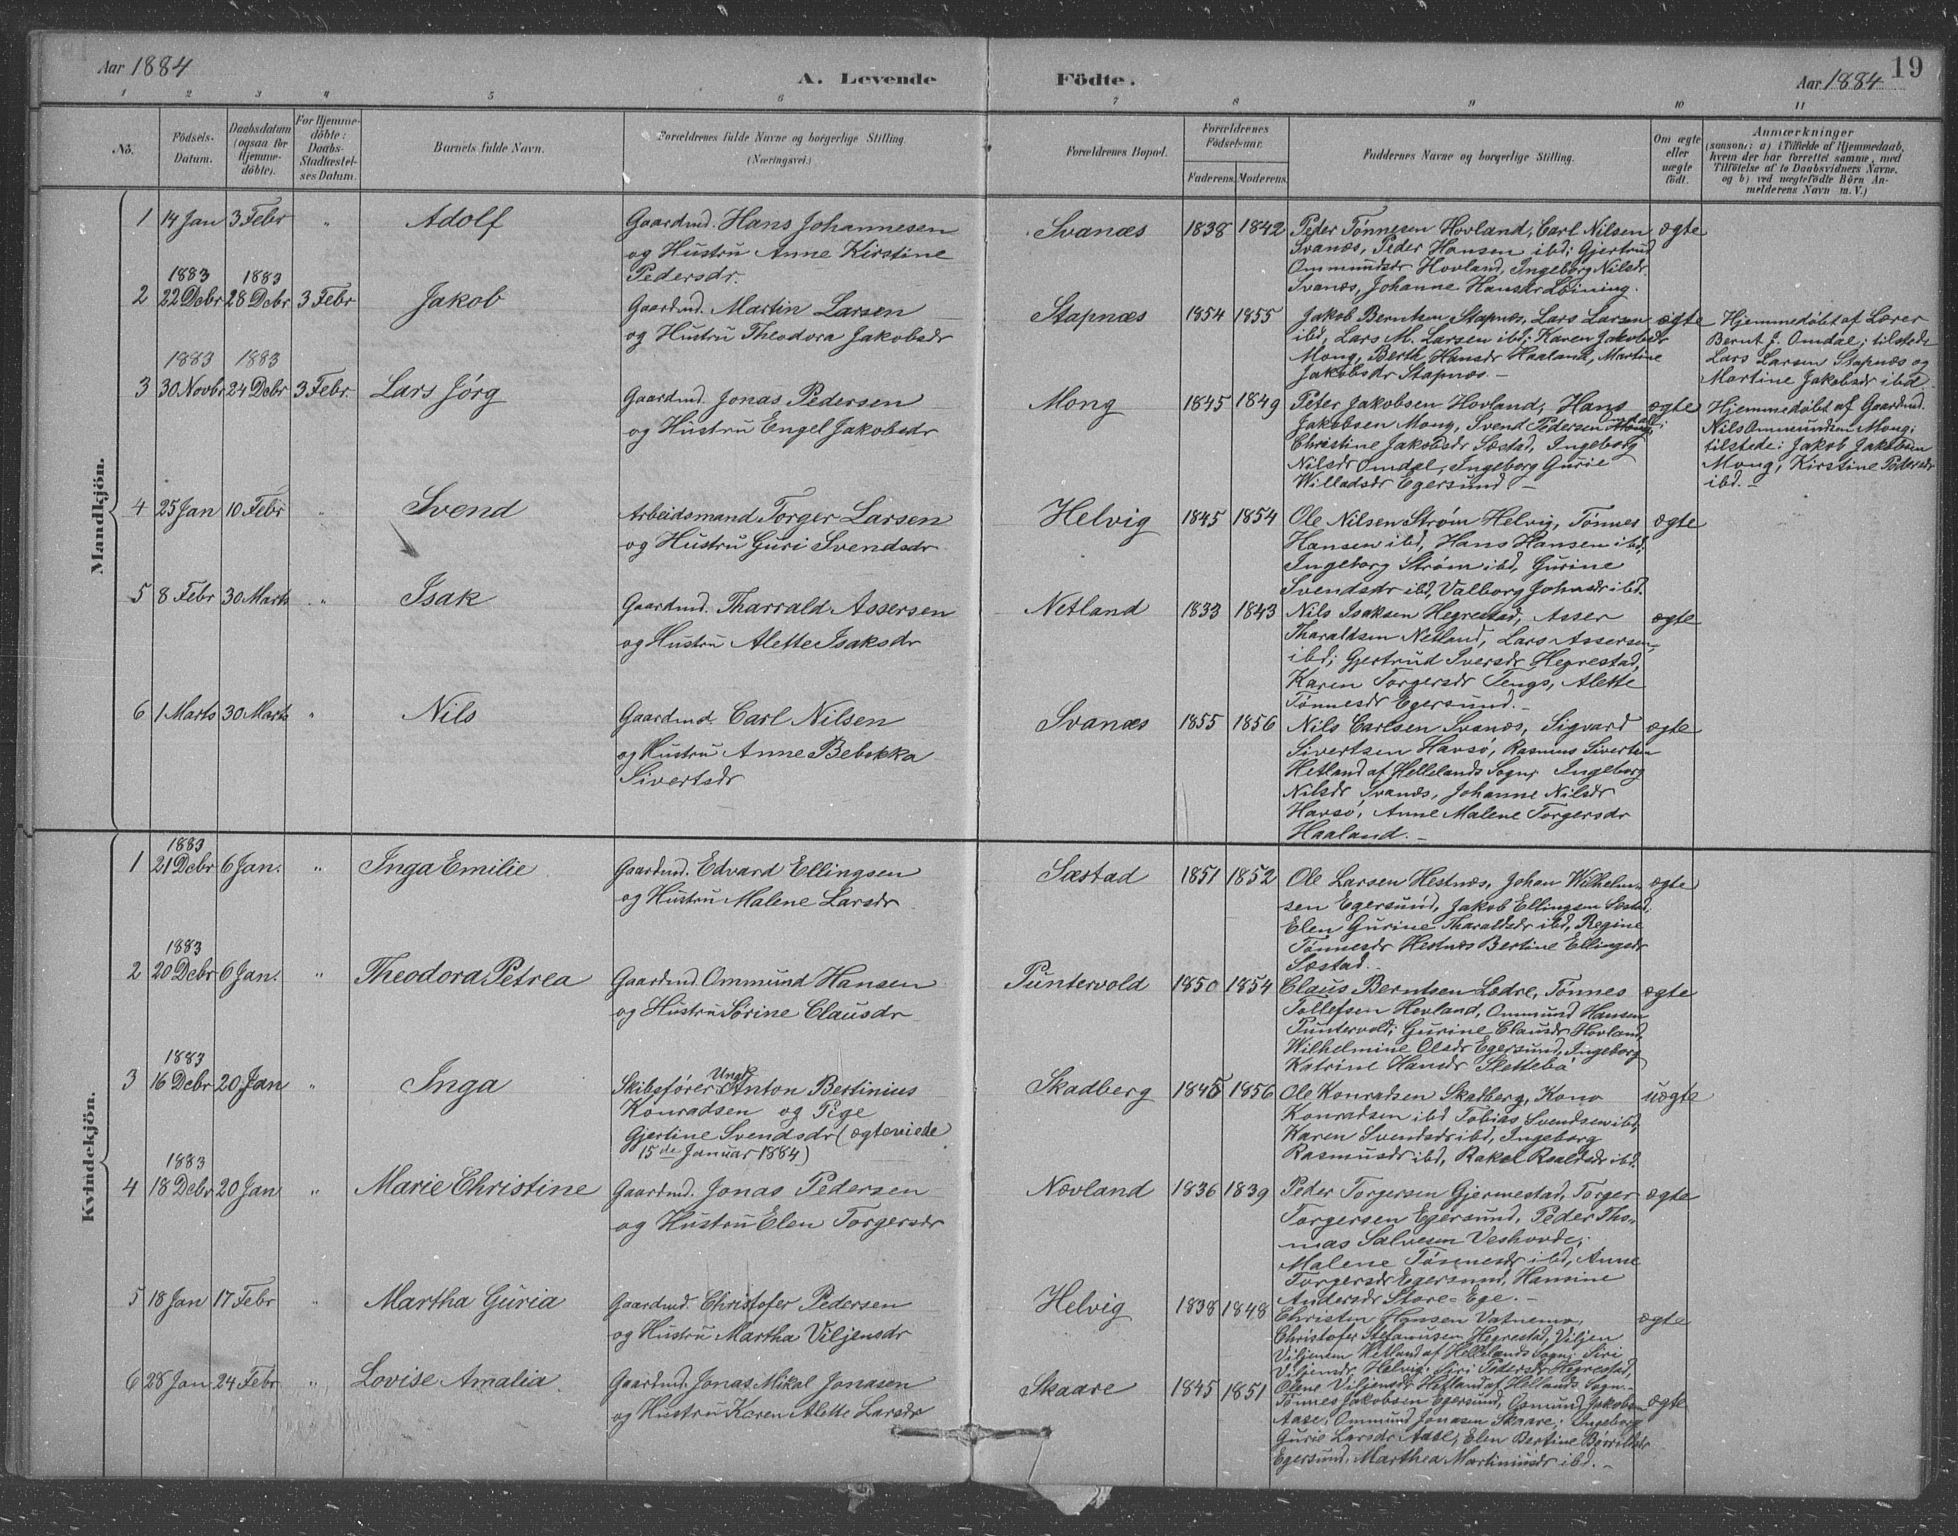 Aar 1884
A. Levende Födte.
Aar 1884
19
1 2 3 4 5 6 7 8 9 10 11
No.
Fødsels-Datum.
Daabsdatum (ogsaa for Hjemmedöbte).
For Hjemmedöbte: Daabs-Stadfæstelses Datum.
Barnets fulde Navn.
Forældrenes fulde Navne og borgerlige Stilling.
(Næringsvei.)
Forældrenes Bopæl.
Forældrenes Födselsaar.
Faderens. Moderens.
Faddernes Navne og borgerlige Stilling.
Om ægte eller uægte födt.
Anmærkninger
(saasom: a) i Tilfælde af Hjemmedaab, hvem der har forrettet samme, med Tilföielse af to Daabsvidners Navne. og b) ved uægtefödte Börn Anmelderens Navn m. V.)
Mandkjön.
1 14 Jan 3 Febr " Adolf
Gaardmd. Hans Johannesen
og Hustru Anne Kirstine
Pedersdr.
Svanæs 1838 1842
Peder Tønnesen Hovland, Carl Nilsen
Svanæs, Peder Hansen ibd; Gjertrud
Ommundsdr Hovland, Ingeborg Nilsdr
Svanæs, Johanne Hansdr Leining.
ægte
1883 1883
2 22 Debr 28 Debr 3 Febr Jakob
Gaardmd. Martin Larsen
og Hustru Theodora Jakobsdr
Stapnæs 1854 1855
Jakob Berntsen Stapnæs, Lars Larsen
ibd, Lars M. Larsen ibd; Karen Jakobsdr
Mong, Berth. Hansdr Haaland, Martine
Jakobsdr Stapnæs. —
ægte
Hjemmedøbt af Lærer
Bernt J. Omdal; tilstede
Lars Larsen Stapnæs og
Martine Jakobsdr ibd.
1883 1883
3 30 Novbr 24 Debr 3 Febr. Lars Jørg
Gaardmd. Jonas Pedersen
og Hustru Engel Jakobsdr
Mong 1845 1849
Peter Jakobsen Hovland, Hans
Jakobsen Mong, Svend Pedersen Omdal;
Christine Jakobsdr Sæstad, Ingeborg
Nilsdr Omdal, Ingeborg Gurie
Willadsdr Egersund. —
ægte
Hjemmedøbt af Gaardmd.
Nils Ommundsen Mong;
tilstede: Jakob Jakobsen
Mong, Kirstine Pedersdr
ibd. —
4 25 Jan 10 Febr " Svend
Arbeidsmand Torger Larsen
og Hustru Guri Svendsdr
Helvig 1845 1854
Ole Nilsen Strøm Helvig, Tønnes
Hansen ibd, Hans Hansen ibd;
Ingeborg Strøm ibd, Gurine
Svendsdr ibd, Valborg Johnsdr ibd.
ægte
5 8 Febr 30 Marts " Isak
Gaardmd. Tharrald Assersen
og Hustru Alette Isaksdr
Netland 1833 1843
Nils Isaksen Hegrestad, Asser
Tharaldsen Netland, Lars Assersen
ibd; Gjertrud Iversdr Hegrestad,
Karen Torgersdr Tengs, Alette
Tønnesdr Egersund. —
ægte
6 1 Marts 30 Marts " Nils
Gaardmd. Carl Nilsen
og Hustru Anne Bebekka
Sivertsdr
Svanæs 1855 1856
Nils Carlsen Svanæs, Sigvard
Sivertsen Havsø, Rasmus Sivertsen
Hetland af Hellelands Sogn; Ingeborg
Nilsdr Svanæs, Johanne Nilsdr
Havsø, Anne Malene Torgersdr
Haaland. —
ægte
Kvindekjön.
1883
1 21 Debr 6 Jan. " Inga Emilie
Gaardmd. Edvard Ellingsen
og Hustru Malene Larsdr
Sæstad 1851 1852
Ole Larsen Hestnæs, Johan Wilhelm-
sen Egersund, Jakob Ellingsen Sæstad,
Elen Gurine Tharaldsdr ibd, Regine
Tønnesdr Hestnæs Bertine Ellingsdr
Sæstad. —
ægte
1883
2 20 Debr 6 Jan. " Theodora Petrea
Gaardmd. Ommund Hansen
og Hustru Sørine Clausdr
Puntervold 1850 1854
Claus Berntsen Lædre, Tønnes
Tollefsen Hovland, Ommund Hansen
Puntervold; Gurine Clausdr Hovland,
Wilhelmine Olsdr Egersund, Ingeborg
Katrine Hansdr Slettebø
ægte
1883
3 16 Debr 20 Jan " Inga
Skibsfører Ungk. Anton Bertinius
Konradsen og Pige
Gjertine Svendsdr (ægteviede
15de Januar 1884)
Skadberg 1845 1856
Ole Konradsen Skadberg, Kono
Konradsen ibd Tobias Svendsen ibd,
Karen Svendsdr ibd, Ingeborg
Rasmusdr ibd, Rakel Roaldsdr ibd.
uægte
1883
4 18 Debr 20 Jan " Marie Christine
Gaardmd. Jonas Pedersen
og Hustru Elen Torgersdr
Nævland 1836 1839
Peder Torgersen Gjermestad, Torger
Torgersen Egersund, Peder Tho-
mas Salvesen Veshovde;
Malene Tønnesdr ibd, Anne
Torgersdr Egersund, Hansine
Andersdr Store-Ege. —
ægte
5 18 Jan 17 Febr " Martha Guria
Gaardmd. Christofer Pedersen
og Hustru Martha Viljensdr
Helvig 1838 1848
Christen Hansen Vatnemo,
Christofer Stefanusen Hegrestad, Viljen
Viljensen Hetland af Hellelands Sogn; Siri
Viljensdr Helvig, Siri Pedersdr Hegrestad,
Olene Viljensdr Hetland af Hellands Sogn. —
ægte
6 28 Jan 24 Febr " Lovise Amalia
Gaardmd. Jonas Mikal Jonasen
og Hustru Karen Alette Larsdr
Skaare 1845 1851
Tønnes Jakobsen Egersund, Osmund Jakobsen
Aase, Ommund Jonasen Skaare; Ingeborg
Gurie Larsdr Aase, Elen Bertine Børrildsdr
Egersund, Marthea Martiniusdr ibd. —
ægte